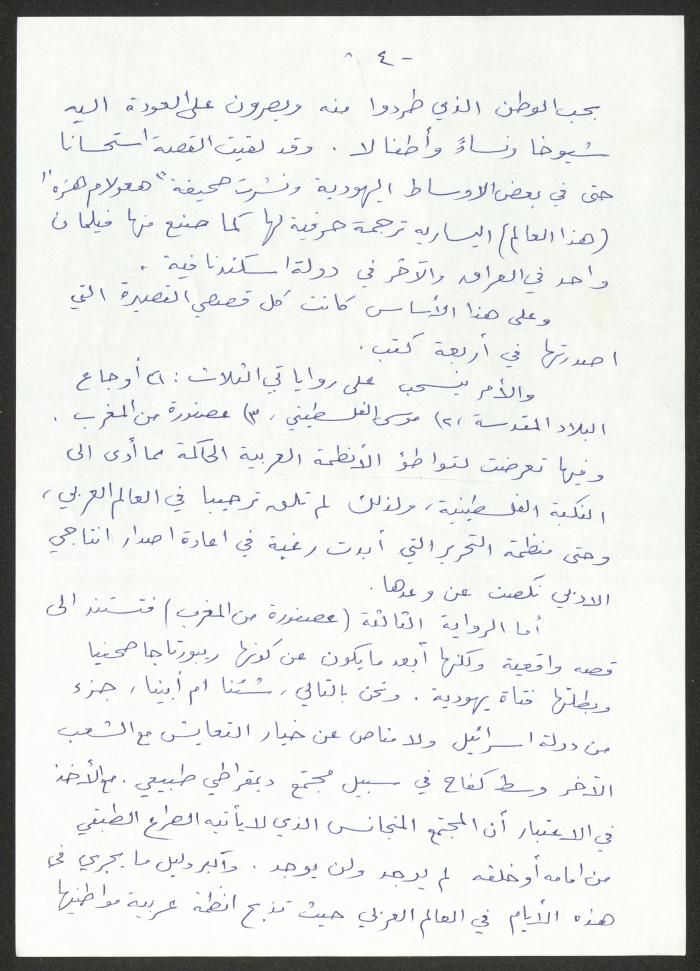 - ٤ -
بحب الوطن الذي طردوا منه ويصرون على العودة اليه
شيوخا ونساءً وأطفالا . وقد لقيت القصة استحسانا
حتى في بعض الاوساط اليهودية ونشرت صحيفة "هعولام هزه"
(هذا العالم) اليسارية ترجمة حرفية لها كما صنع منها فيلمان
واحد في العراق والآخر في دولة اسكندنافية .
وعلى هذا الأساس كانت كل قصصي القصيرة التي
اصدرتها في أربعة كتب .
والأمر ينسحب على رواياتي الثلاث : ١) أوجاع
البلاد المقدسة ، ٢) موسى الفلسطيني ، ٣) عصفورة من المغرب .
وفيها تعرضت لتواطؤ الأنظمة العربية الحاكمة مما أدى الى
النكبة الفلسطينية ، ولذلك لم تلق ترحيبا في العالم العربي ،
وحتى منظمة التحرير التي أبدت رغبة في اعادة اصدار انتاجي
الادبي نكصت عن وعدها .
أما الرواية الثالثة (عصفورة من المغرب) فتستند الى
قصه واقعية ولكنها أبعد ما يكون عن كونها ريبورتاجا صحفيا
وبطلتها فتاة يهودية . ونحن بالتالي ، شئنا ام أبينا ، جزء
من دولة اسرائيل ولا مناص عن خيار التعايش مع الشعب
الآخر وسط كفاح في سبيل مجتمع ديمقراطي طبيعي . مع الأخذ
في الاعتبار أن المجتمع المتجانس الذي لا يأتيه الصراع الطبقي
من امامه أو خلفه لم يوجد ولن يوجد . وأكبر دليل ما يجري في
هذه الأيام في العالم العربي حيث تذبح انظمة عربية مواطنيها